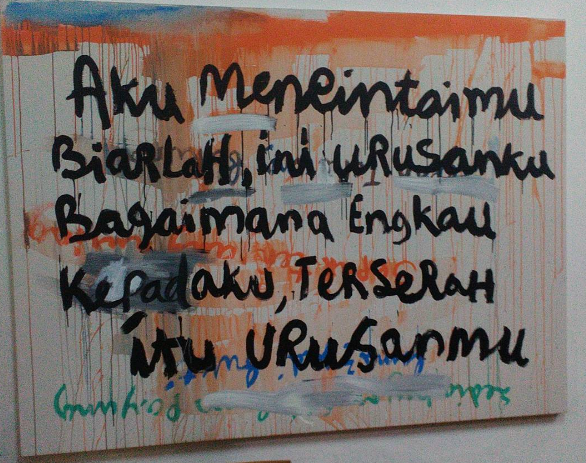 Aku Mencintaimu
BiARLaH, ini uRuSanku
Bagaimana Engkau
Kepadaku, TeRSeRaH
itu uRuSanmu